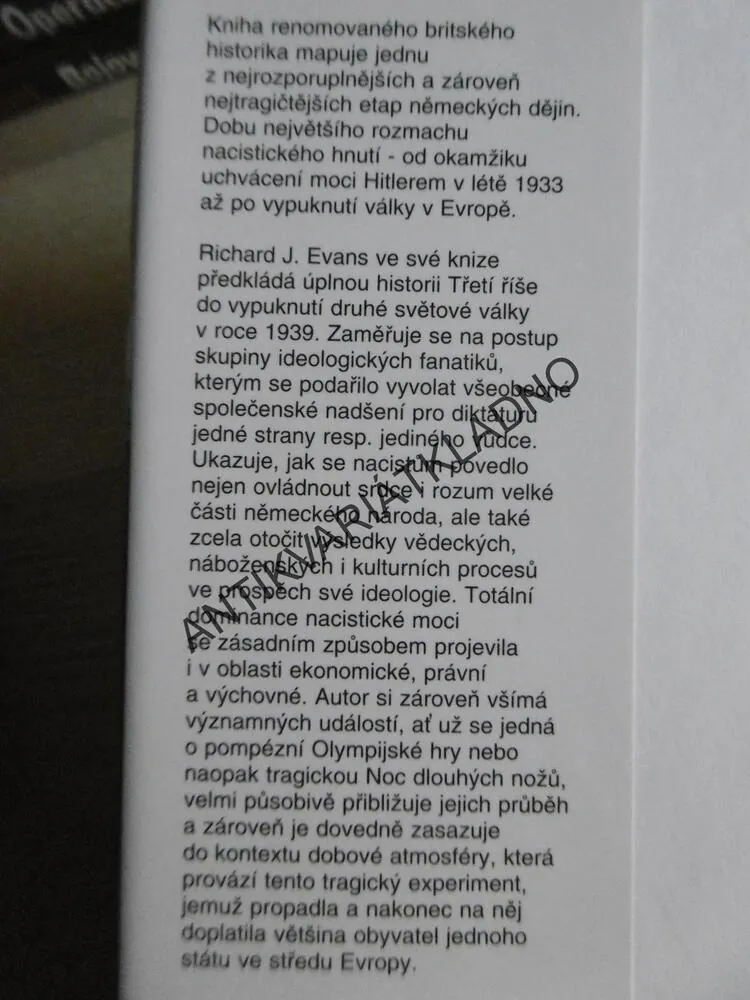 Kniha renomovaného britského
historika mapuje jednu
z nejrozporuplnějších a zároveň
nejtragičtějších etap německých dějin.
Dobu největšího rozmachu
nacistického hnutí - od okamžiku
uchvácení moci Hitlerem v létě 1933
až po vypuknutí války v Evropě.
Richard J. Evans ve své knize
předkládá úplnou historii Třetí říše
do vypuknutí druhé světové války
v roce 1939. Zaměřuje se na postup
skupiny ideologických fanatiků,
kterým se podařilo vyvolat všeobecné
společenské nadšení pro diktaturu
jedné strany resp. jediného vůdce.
Ukazuje, jak se nacistům povedlo
nejen ovládnout srdce i rozum velké
části německého národa, ale také
zcela otočit výsledky vědeckých,
náboženských i kulturních procesů
ve prospěch své ideologie. Totální
dominance nacistické moci
se zásadním způsobem projevila
i v oblasti ekonomické, právní
a výchovné. Autor si zároveň všímá
významných událostí, ať už se jedná
o pompézní Olympijské hry nebo
naopak tragickou Noc dlouhých nožů,
velmi působivě přibližuje jejich průběh
a zároveň je dovedně zasazuje
do kontextu dobové atmosféry, která
provází tento tragický experiment,
jemuž propadla a nakonec na něj
doplatila většina obyvatel jednoho
státu ve středu Evropy.
ANTIKVARIÁTKLADNO